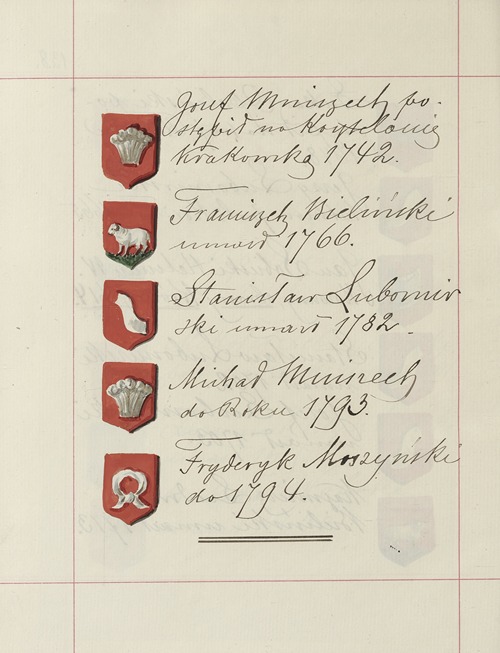 Józef Mniszech po-
stąpił na Kasztelanię
Krakowską 1742.
Franciszek Bieliński
umarł 1766.
Stanisław Lubomir
ski umarł 1782.
Michał Mniszech
do Roku 1793.
Fryderyk Moszyński
do 1794.